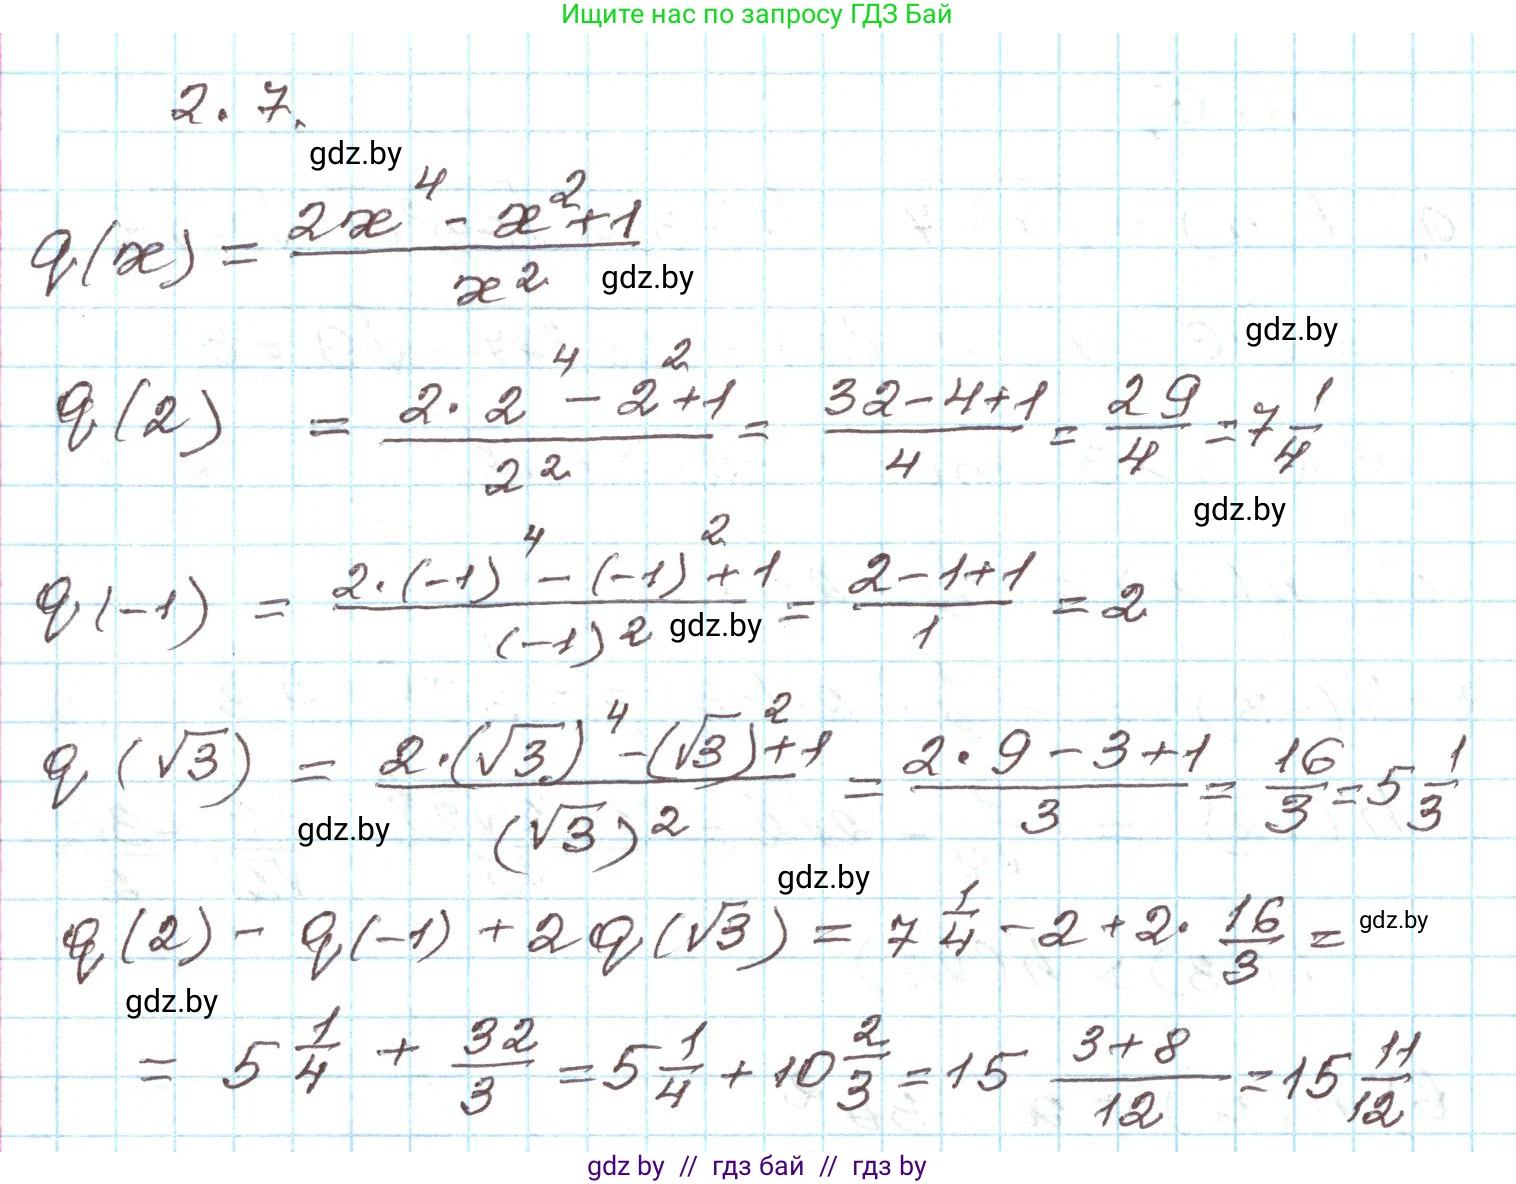 Ищите нас по запросу ГДЗ Бай
2. 7.
gdz.by
q(x) = (2x⁴ - x² + 1) / x²
gdz.by
gdz.by
q(2) = (2·2⁴ - 2² + 1) / 2² = (32 - 4 + 1) / 4 = 29/4 = 7 1/4
gdz.by
q(-1) = (2·(-1)⁴ - (-1)² + 1) / (-1)² = (2 - 1 + 1) / 1 = 2
gdz.by
q(√3) = (2·(√3)⁴ - (√3)² + 1) / (√3)² = (2·9 - 3 + 1) / 3 = 16/3 = 5 1/3
gdz.by
gdz.by
q(2) - q(-1) + 2q(√3) = 7 1/4 - 2 + 2·16/3 =
gdz.by
gdz.by
= 5 1/4 + 32/3 = 5 1/4 + 10 2/3 = 15 (3+8)/12 = 15 11/12
gdz by // гдз бай // гдз by